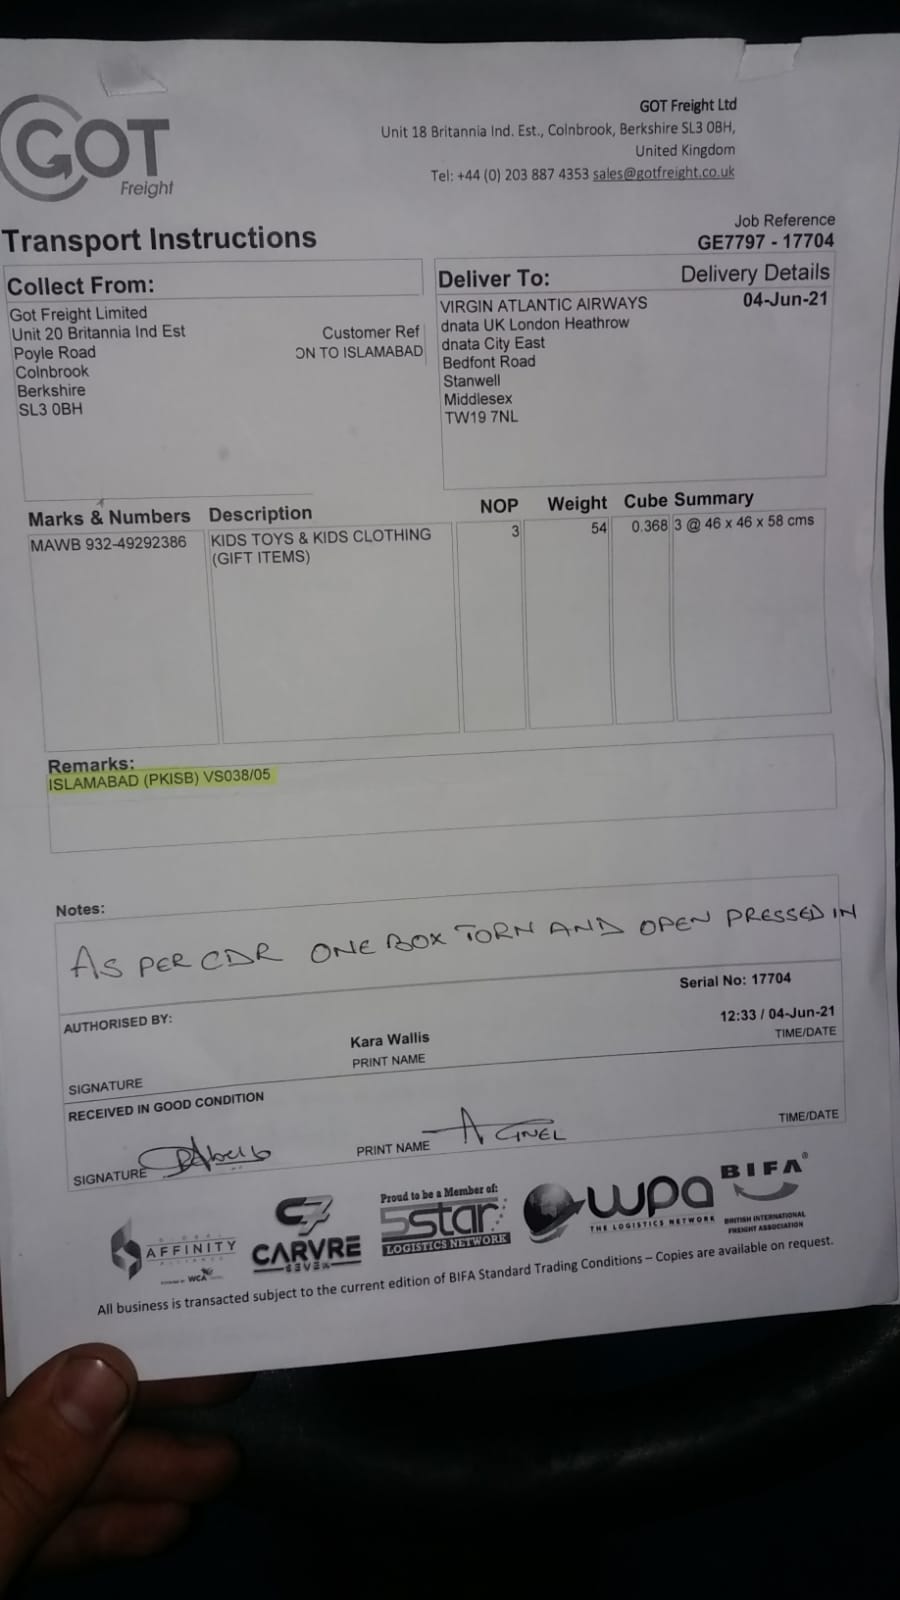 GOT
Freight
GOT Freight Ltd
Unit 18 Britannia Ind. Est., Colnbrook, Berkshire SL3 0BH,
United Kingdom
Tel: +44 (0) 203 887 4353 sales@gotfreight.co.uk
Transport Instructions
Job Reference
GE7797 - 17704
Collect From:
Got Freight Limited
Unit 20 Britannia Ind Est
Poyle Road
Colnbrook
Berkshire
SL3 0BH
Customer Ref
ON TO ISLAMABAD
Deliver To:
Delivery Details
04-Jun-21
VIRGIN ATLANTIC AIRWAYS
dnata UK London Heathrow
dnata City East
Bedfont Road
Stanwell
Middlesex
TW19 7NL
Marks & Numbers Description NOP Weight Cube Summary
MAWB 932-49292386 KIDS TOYS & KIDS CLOTHING 3 54 0.368 3 @ 46 x 46 x 58 cms
(GIFT ITEMS)
Remarks:
ISLAMABAD (PKISB) VS038/05
Notes:
AS PER CDR ONE BOX TORN AND OPEN PRESSED IN
Serial No: 17704
AUTHORISED BY:
Kara Wallis
12:33 / 04-Jun-21
SIGNATURE
PRINT NAME
TIME/DATE
RECEIVED IN GOOD CONDITION
SIGNATURE
PRINT NAME
TIME/DATE
AFFINITY
WCA
C7
CARVRE
SEVEN
Proud to be a Member of:
5star
LOGISTICS NETWORK
wpa
THE LOGISTICS NETWORK
BIFA®
BRITISH INTERNATIONAL
FREIGHT ASSOCIATION
All business is transacted subject to the current edition of BIFA Standard Trading Conditions – Copies are available on request.